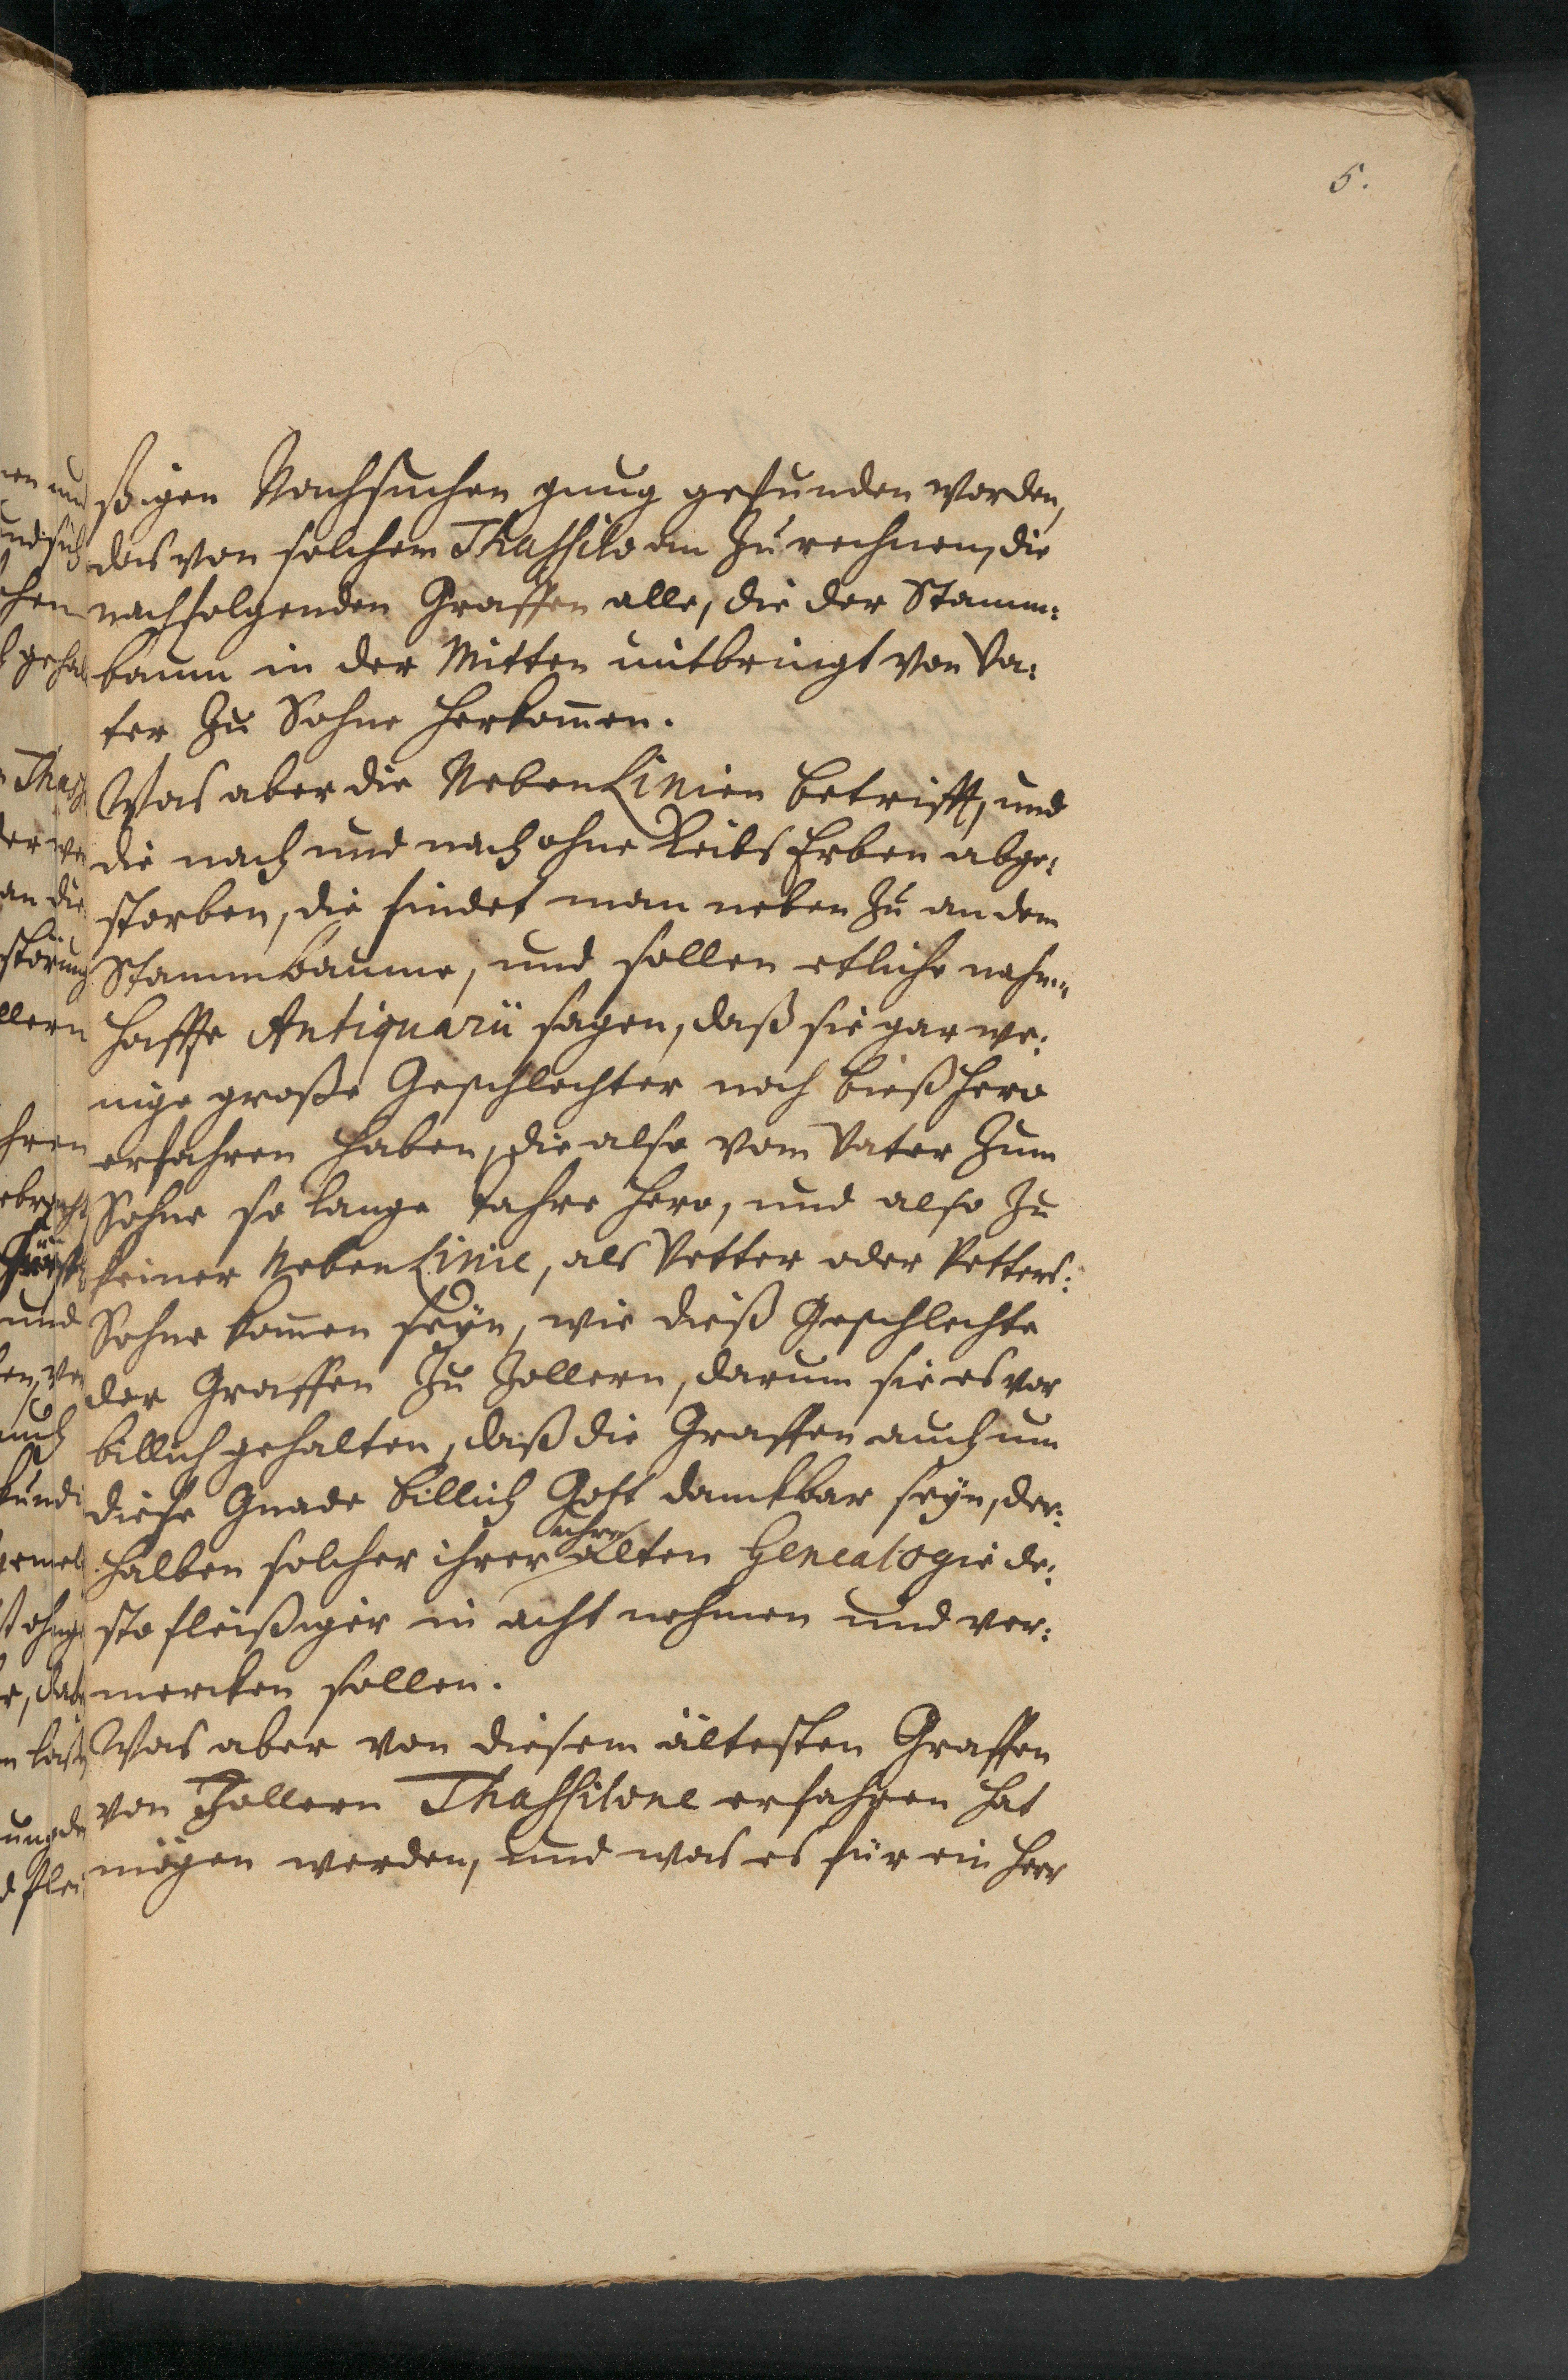 5.
ßigen Nachsuchen gnug gefunden worden,
das von solchem Thassilo an zu rechnen, die
nachfolgenden Graffen alle, die der Stamm:
baum in der Mitten mitbringt von Va:
ter zu Sohne herkom̅en.
Was aber die Neben Linien betrifft, und
die nach und nach ohne Leibs Erben abge:
storben, die findet man neben zu an dem
Stammbaume, und sollen etliche nahm:
haffte Antiquarii sagen, daß sie gar we:
nige große Geschlechter noch bießhero
erfahren haben, die also vom Vater zum
Sohne so lange Jahre hero, und also zu
keiner Neben Linie, als Vetter oder Vetters:
Sohne kom̅en seyn, wie dieß Geschlechte
der Graffen zu Zollern, darum sie es vor
billich gehalten, daß die Graffen auch um
diese Gnade billich Gott danckbar seyn, der:
halben solcher ihrer uhralten Genealogie de:
sto fleißiger in acht nehmen und ver:
mercken sollen.
Was aber von diesem ältesten Graffen
von Zollern Thassilone erfahren hat
mögen werden, und was es für ein Herr